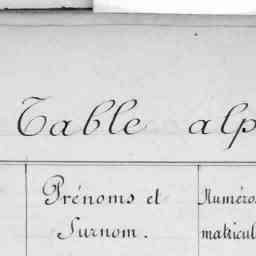 Table alp
Prénoms et
Surnom.
Numéros
matricul